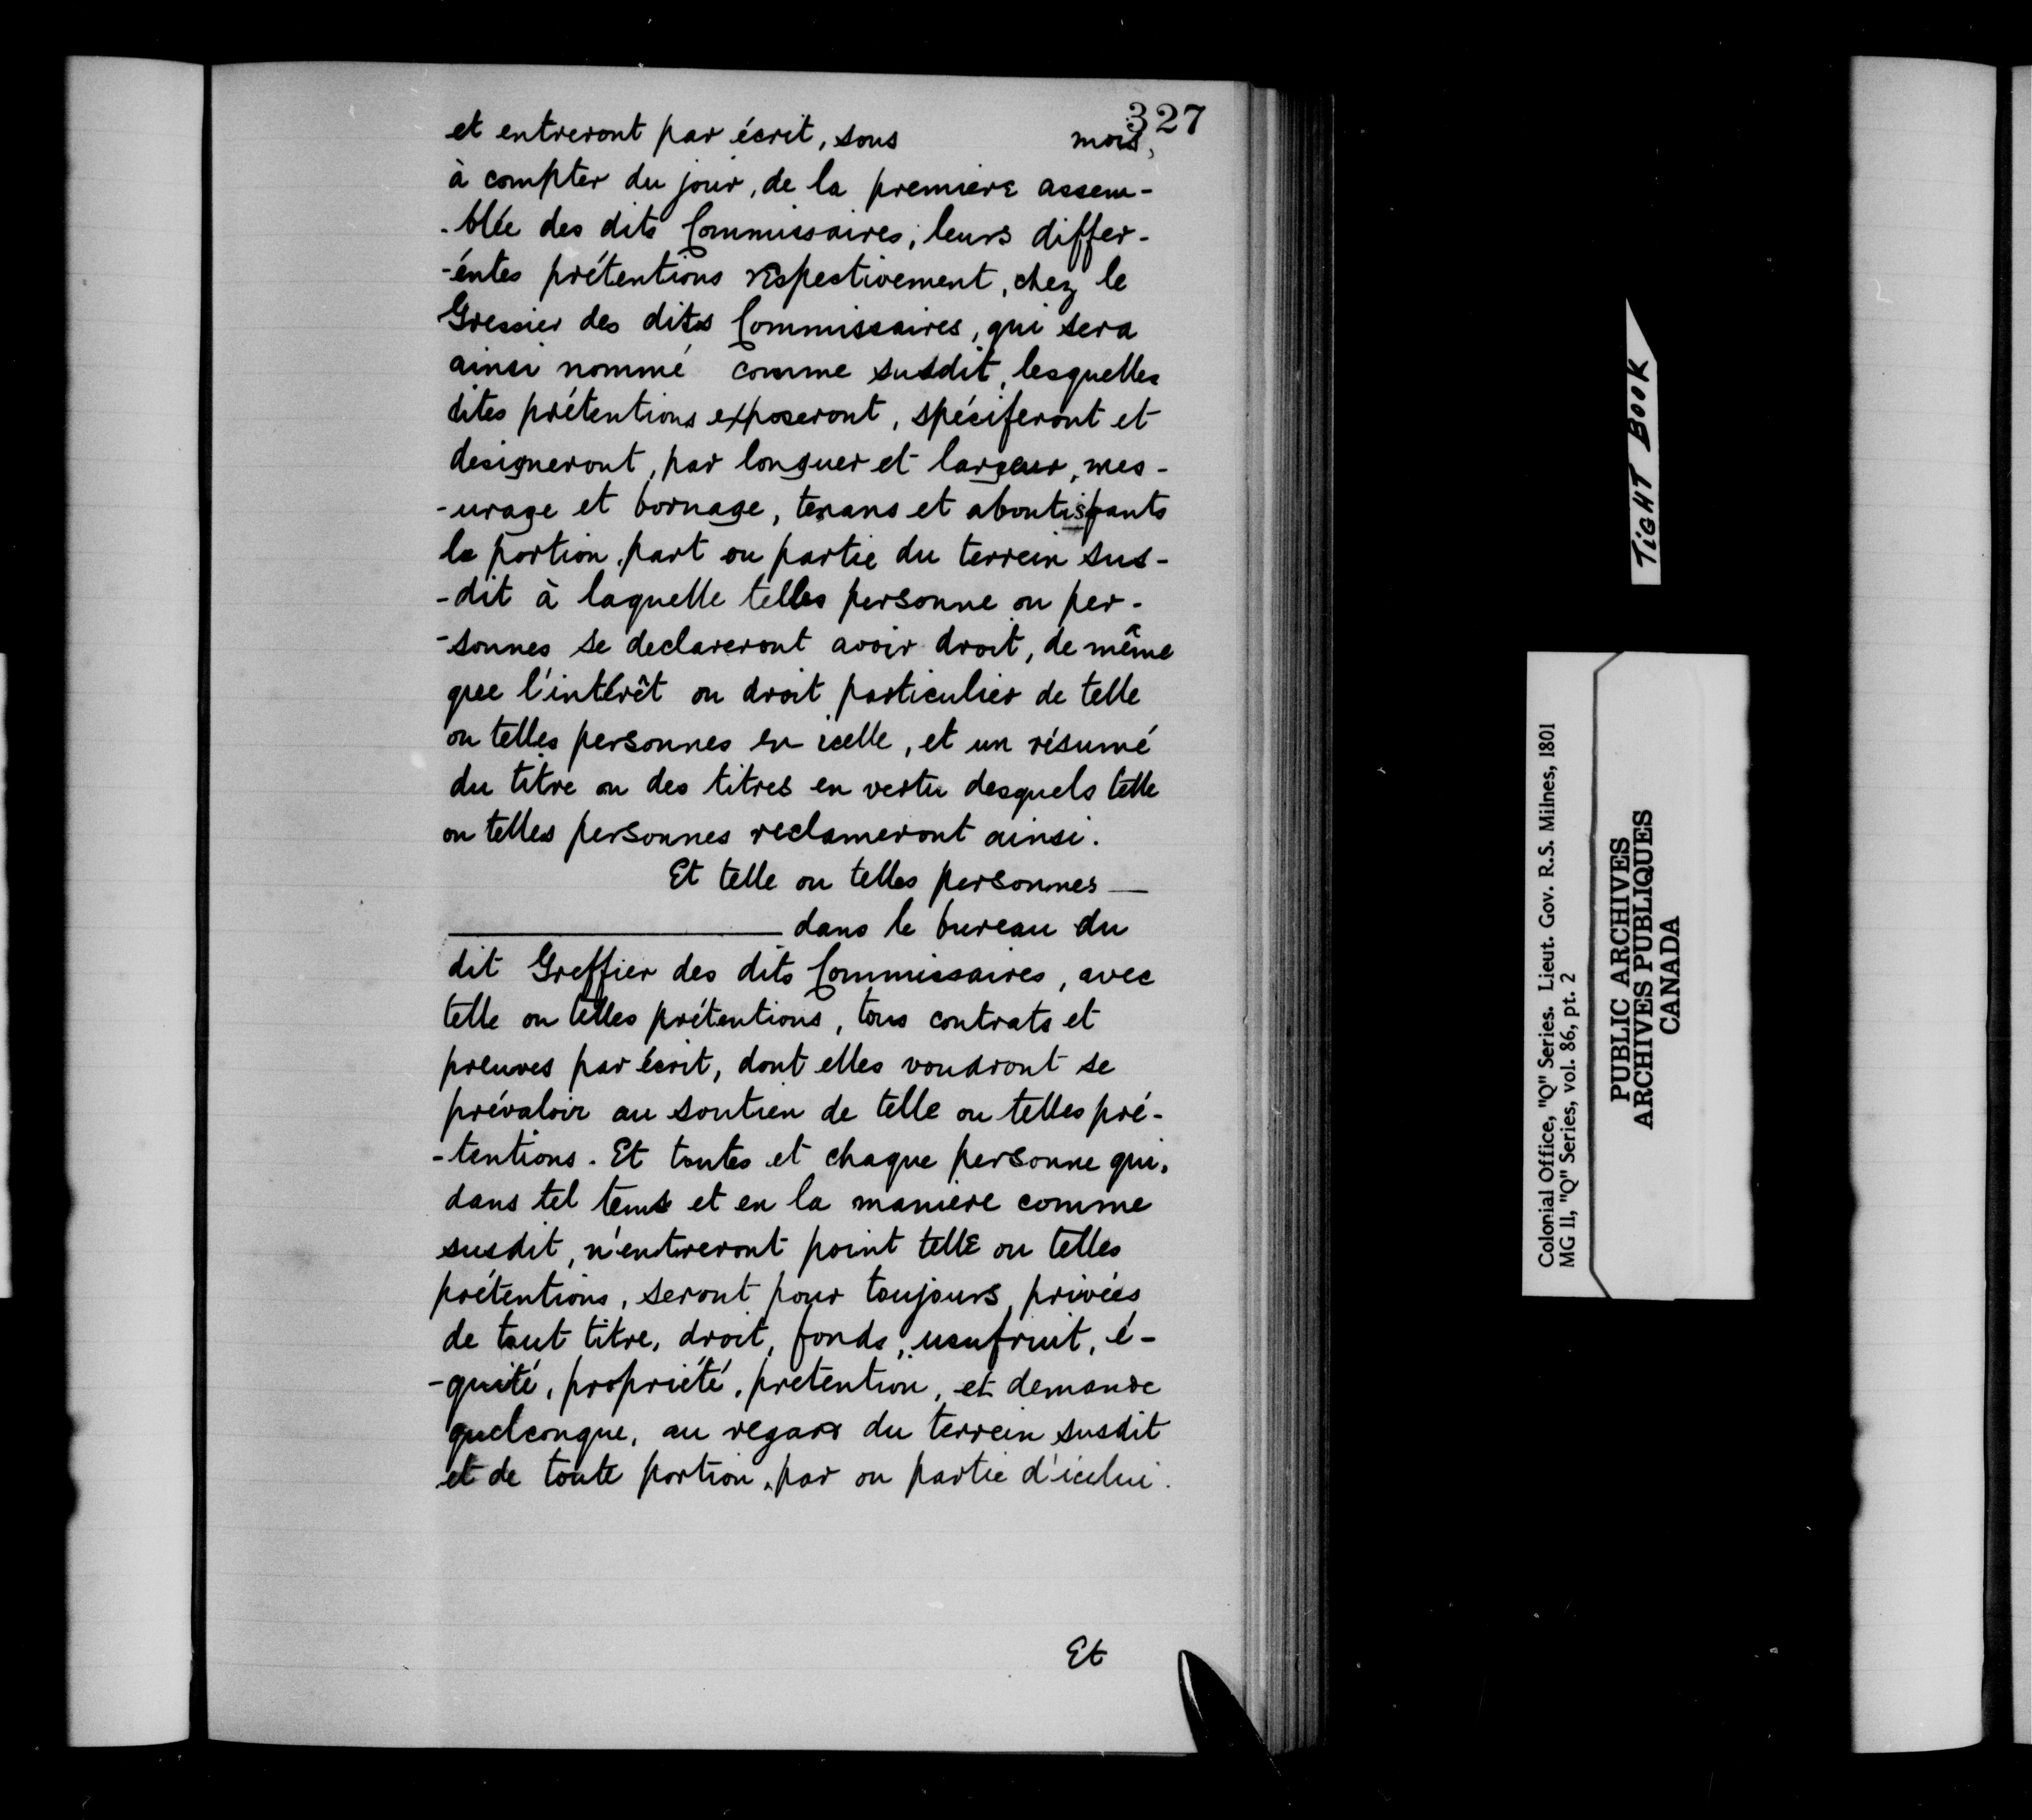 327
et entreront par écrit, sous mois,
à compter du jour, de la premiere assem-
-blée des dits Commissaires, leurs differ-
-éntes prétentions respectivement, chez le
Gressier des dits Commissaires, qui sera
ainsi nommé comme susdit, lesquelles
dites prétentions exposeront, spéciferont et
designeront, par longuer et largeur, mes-
-urage et bornage, tenans et aboutissants
la portion, part ou partie du terrein sus-
-dit à laquelle telles personne ou per-
-sonnes se declareront avoir droit, de même
que l'intérêt ou droit particulier de telle
ou telles personnes en icelle, et un résumé
du titre ou des titres en vertu desquels telle
ou telles personnes reclameront ainsi.
Et telle ou telles personnes —
——— dans le bureau du
dit Greffier des dits Commissaires, avec
telle ou telles prétentions, tous contrats et
preuves par écrit, dont elles voudront se
prévaloir au soutien de telle ou telles pré-
-tentions. Et toutes et chaque personne qui,
dans tel tems et en la maniere comme
susdit, n'entreront point telle ou telles
prétentions, seront pour toujours, privées
de tout titre, droit, fonds, usufruit, é-
-quité, propriété, pretention, et demande
quelconque, au regard du terrein susdit
et de toute portion, par ou partie d'icelui.
Et
TIGHT BOOK
Colonial Office, "Q" Series. Lieut. Gov. R.S. Milnes, 1801
MG 11, "Q" Series, vol. 86, pt. 2
PUBLIC ARCHIVES
ARCHIVES PUBLIQUES
CANADA